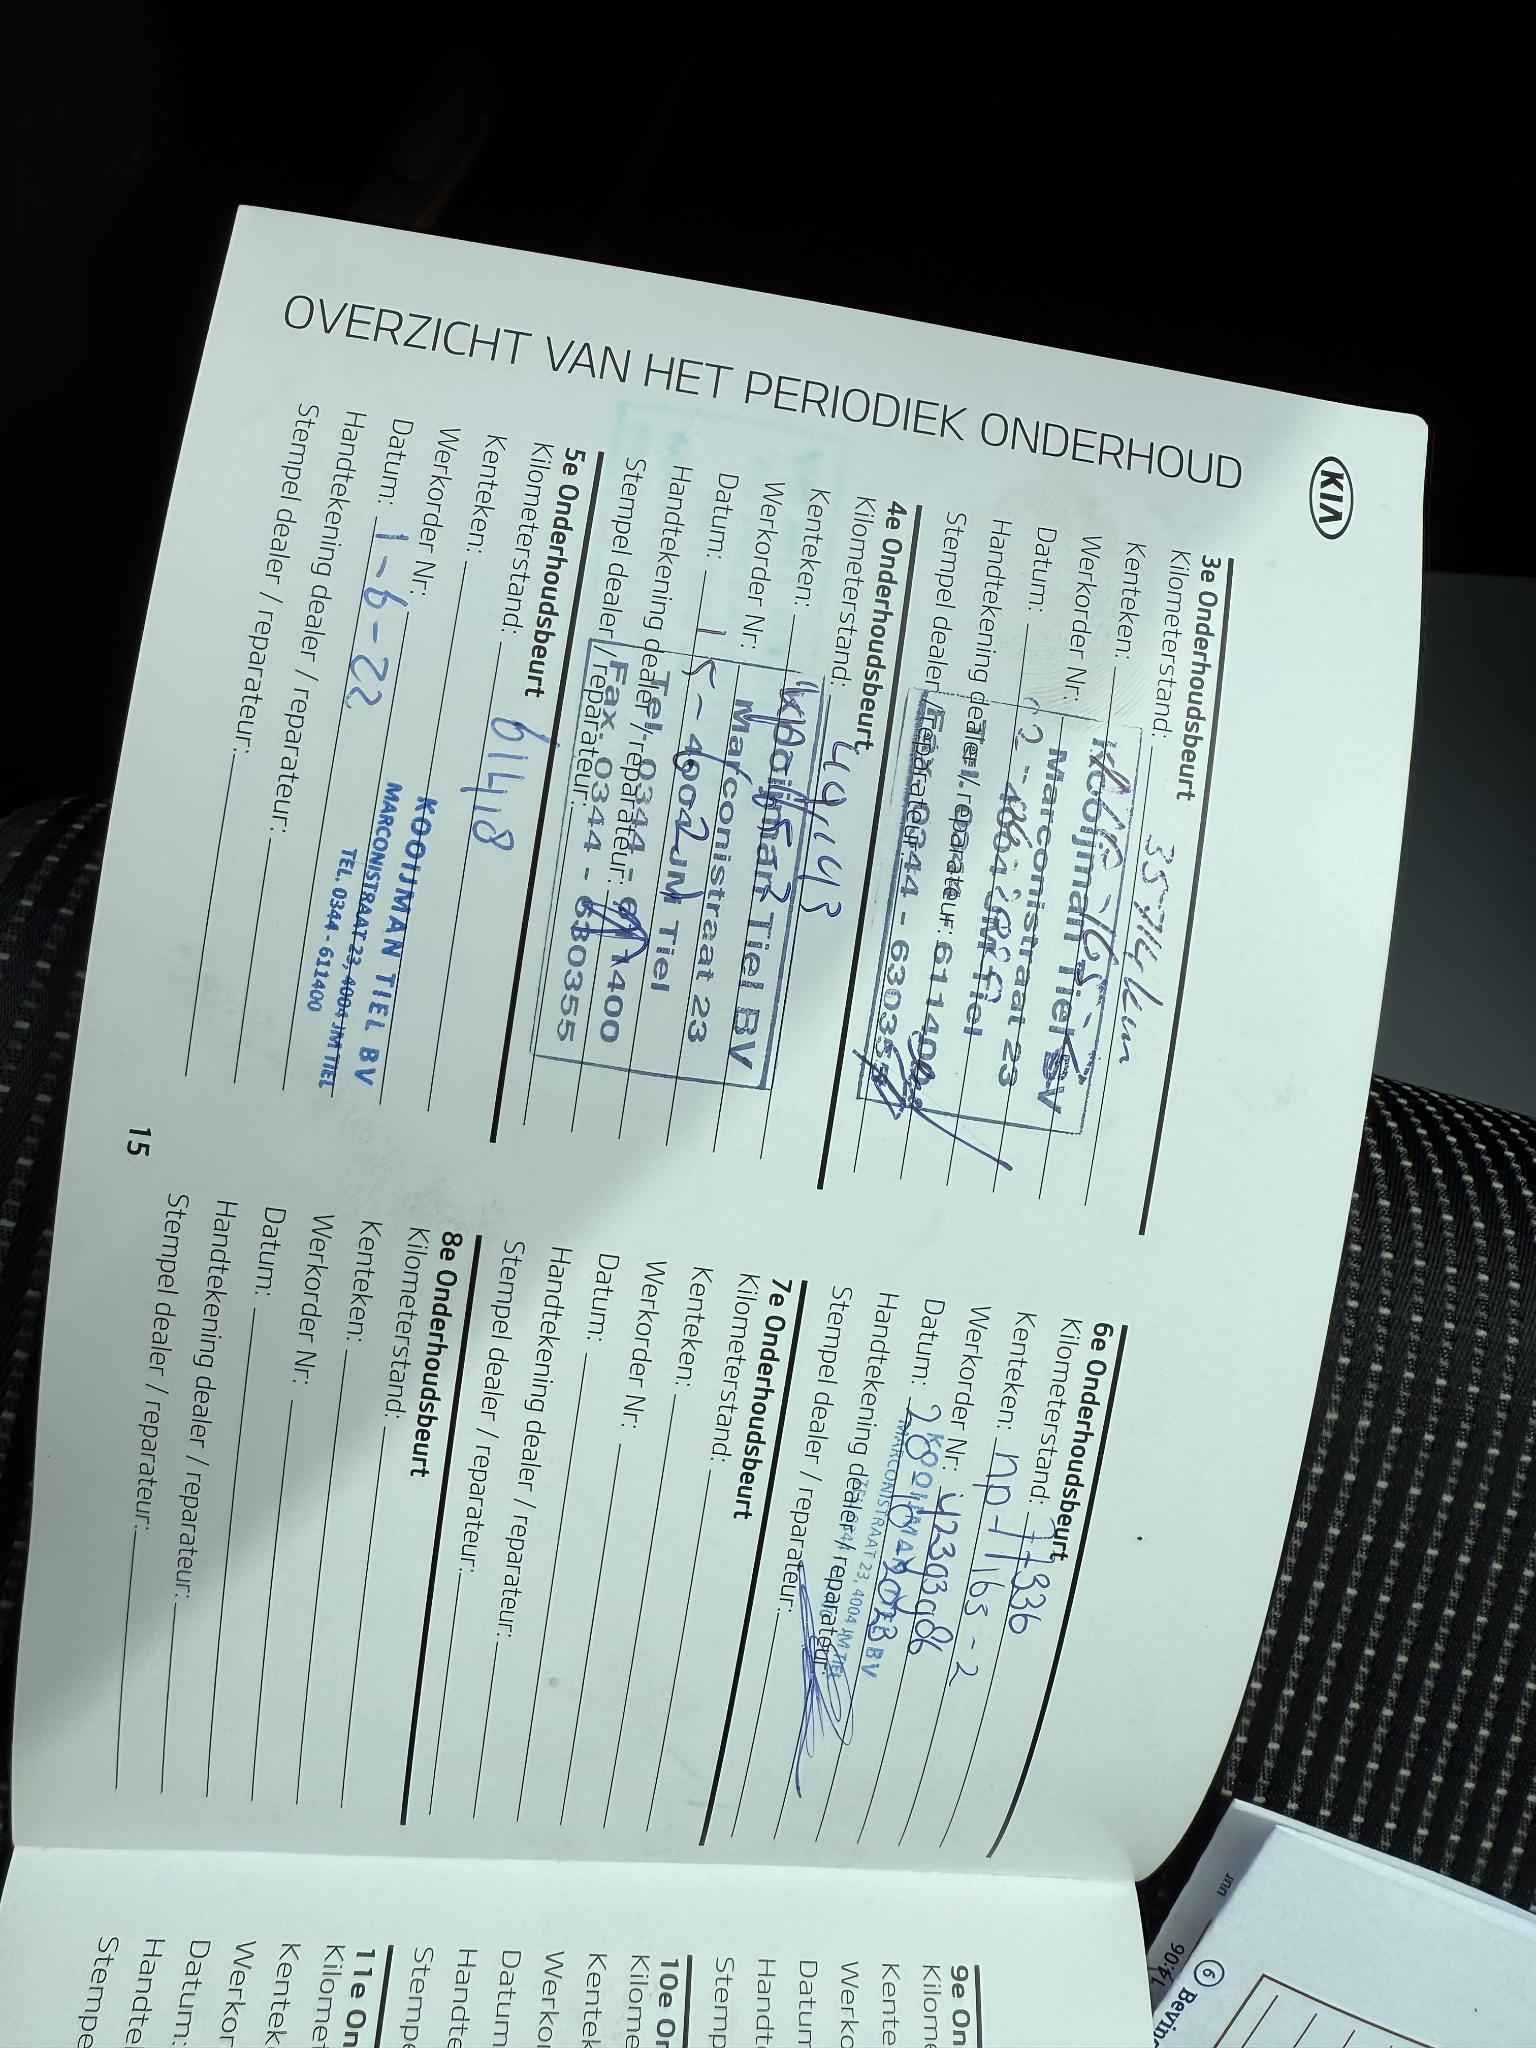 KIA
OVERZICHT VAN HET PERIODIEK ONDERHOUD
3e Onderhoudsbeurt
Kilometerstand:
Kenteken:
Werkorder Nr:
Datum:
Handtekening dealer / reparateur:
Stempel dealer / reparateur:
Kooijman Tiel BV
Marconistraat 23
4004 JM Tiel
Tel. 0344 - 611400
Fax. 0344 - 630355
4e Onderhoudsbeurt
Kilometerstand: 49,143
Kenteken:
Werkorder Nr:
Datum:
Handtekening dealer / reparateur:
Stempel dealer / reparateur:
Kooijman Tiel BV
Marconistraat 23
4004 JM Tiel
Tel. 0344 - 611400
Fax. 0344 - 630355
5e Onderhoudsbeurt
Kilometerstand: 61418
Kenteken:
Werkorder Nr:
Datum: 1-6-22
Handtekening dealer / reparateur:
Stempel dealer / reparateur:
KOOIJMAN TIEL BV
MARCONISTRAAT 23, 4004 JM TIEL
TEL. 0344 - 611400
15
6e Onderhoudsbeurt
Kilometerstand: 77336
Kenteken: np-165-2
Werkorder Nr:
Datum:
Handtekening dealer / reparateur:
Stempel dealer / reparateur:
KOOIJMAN TIEL BV
MARCONISTRAAT 23, 4004 JM TIEL
7e Onderhoudsbeurt
Kilometerstand:
Kenteken:
Werkorder Nr:
Datum:
Handtekening dealer / reparateur:
Stempel dealer / reparateur:
8e Onderhoudsbeurt
Kilometerstand:
Kenteken:
Werkorder Nr:
Datum:
Handtekening dealer / reparateur:
Stempel dealer / reparateur:
9e On
Kilome
Kente
Werko
Datum
Handt
Stemp
10e On
Kilome
Kentek
Werkor
Datum
Handte
Stempe
11e On
Kilomet
Kentek
Werkor
Datum:
Handtel
Stempe
uur
14:06
6 Bevin